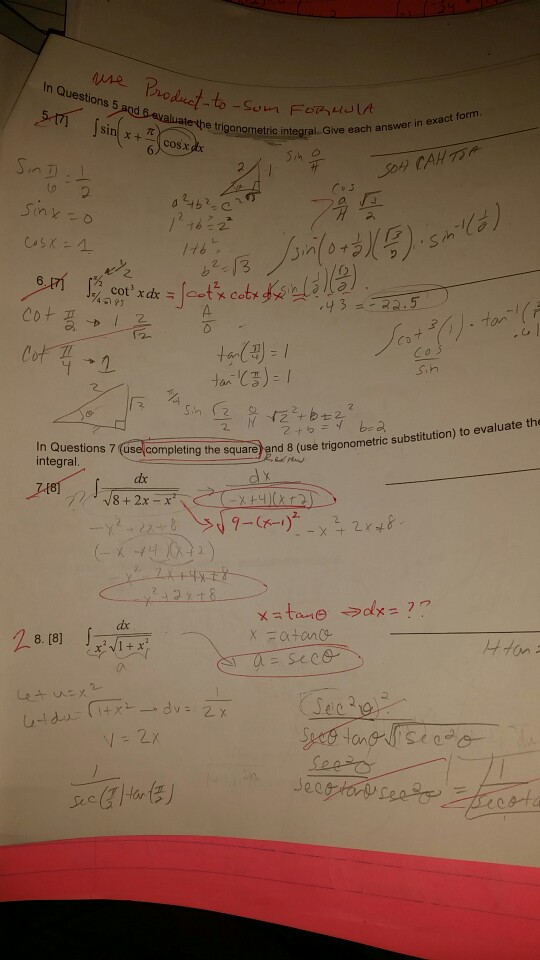 use Product-to-Sum FORMULA
In Questions 5 and 6 evaluate the trigonometric integral. Give each answer in exact form.
5. [7] ∫ sin(x + π/6) cos x dx
sin O/H
SOH CAHTOA
Sin π/6 = 1/2
sinx = 0
cosx = 1
2 1
a²+b²=c²
1²+b²=2²
1+b²
b²=√3
cos
a/H √3/2
∫sin(0+1/2)(√3/2) · sin⁻¹(1/2)
6. [7] ∫ cot³ x dx = ∫cot²x cotx dx
sin(1/2)(√3/2)
.43 = -22.5
cot π/2 → 1 2/√2
cot π/4 → 1
A/O
tan(π/4) = 1
tan⁻¹(π/2) = 1
∫cot³(1) · tan⁻¹
cos/sin
2 √2 θ
π/4 sin √2/2 O/H √2²+b=2²
2+b=4 b=2
In Questions 7 (use completing the square) and 8 (use trigonometric substitution) to evaluate the
integral.
7. [8] ∫ dx/√(8 + 2x − x²) → dx/(-x+4)(x+2)
??
→ √9-(x-1)²
-x²+2x+8
-x²+2x+8
(-x+4)(x+2)
-x² 2x+4x+8
-x²+2x+8
2 8. [8] ∫ dx/(x²√(1 + x²))
a
x=tanθ ⇒ dx= ??
x = atanθ
a = secθ
H tan
let u=x²
let du= √1+x² → dv= 1/2x
V = 2x
1/sec(π/2) tan(π/2)
(sec²θ)²
secθ tanθ √1sec²θ
sec²θ
secθtanθ sec²θ = 1/